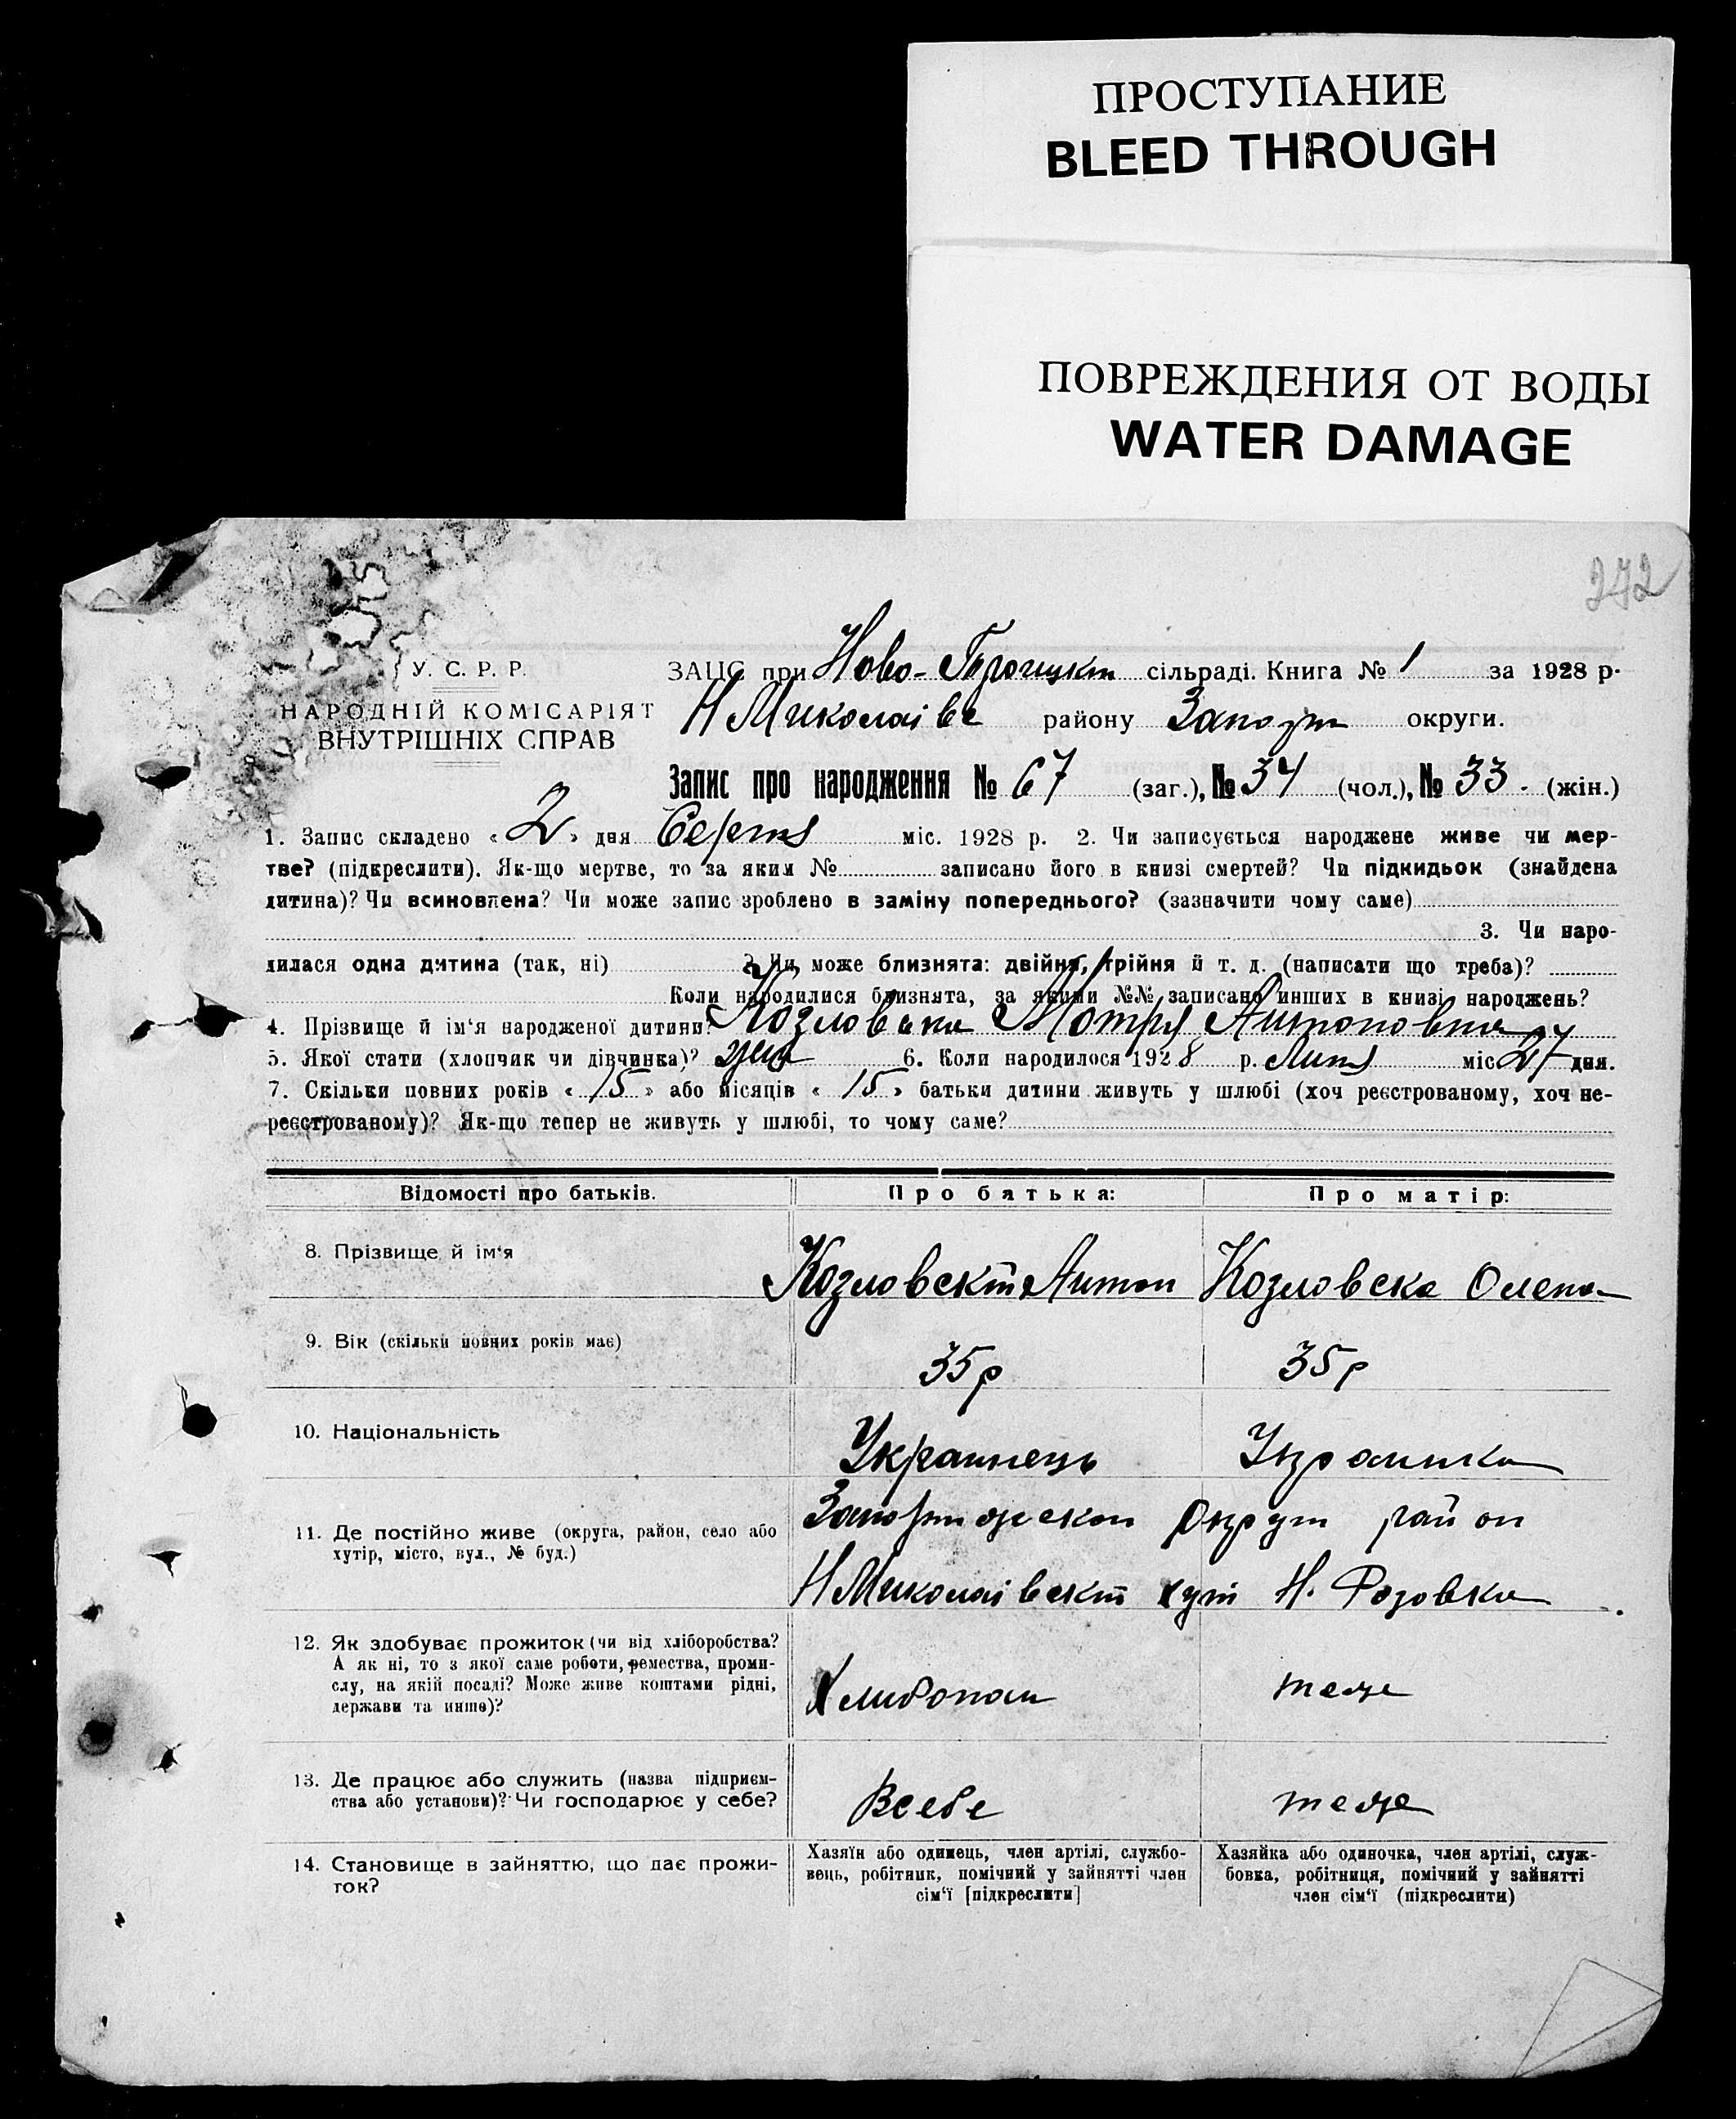 ПРОСТУПАНИЕ
BLEED THROUGH
ПОВРЕЖДЕНИЯ ОТ ВОДЫ
WATER DAMAGE
272
У. С. Р. Р.
НАРОДНІЙ КОМІСАРІЯТ
ВНУТРІШНІХ СПРАВ
ЗАЦС при Ново- сільраді. Книга № 1 за 1928 р.
Н Миколаівс району Запор округи.
Запис про народження № 67 (заг.), № 34 (чол.), № 33. (жін.)
1. Запис складено « 2 » дня Серпня міс. 1928 р. 2. Чи записується народжене живе чи мер-
тве? (підкреслити). Як-що мертве, то за яким № записано його в книзі смертей? Чи підкидьок (знайдена
дитина)? Чи всиновлена? Чи може запис зроблено в заміну попереднього? (зазначити чому саме)
3. Чи наро-
дилася одна дитина (так, ні) ? Чи може близнята: двійня, трійня й т. д. (написати що треба)?
Коли народилися близнята, за якими №№ записано инших в книзі народжень?
4. Прізвище й ім'я народженої дитини? Козловська Мотря Антоновна
5. Якої стати (хлопчик чи дівчинка)? 6. Коли народилось 1928 р. Липня міс 27 дня.
7. Скільки повних років « 15 » або місяців « 15 » батьки дитини живуть у шлюбі (хоч реєстрованому, хоч не-
реєстрованому)? Як-що тепер не живуть у шлюбі, то чому саме?
Відомості про батьків. Про батька: Про матір:
8. Прізвище й ім'я Козловскій Антон Козловска Олена
9. Вік (скільки повних років має) 35 р 35 р
10. Національність Украинець Украинка
11. Де постійно живе (округа, район, село або
хутір, місто, вул., № буд.)
Запорижскои Округи район
Н Миколаівский хут Н. Розовка
12. Як здобуває прожиток (чи від хліборобства?
А як ні, то з якої саме роботи, ремества, проми-
слу, на якій посаді? Може живе коштами рідні,
держави та инше)?
Хлибопаш теже
13. Де працює або служить (назва підприєм-
ства або установи)? Чи господарює у себе?
Всебе теже
14. Становище в зайняттю, що дає прожи-
ток?
Хазяїн або одинець, член артілі, службо-
вець, робітник, помічний у зайнятті член
сім'ї [підкреслити]
Хазяйка або одиночка, член артілі, служ-
бовка, робітниця, помічний у зайнятті
член сім'ї (підкреслити)